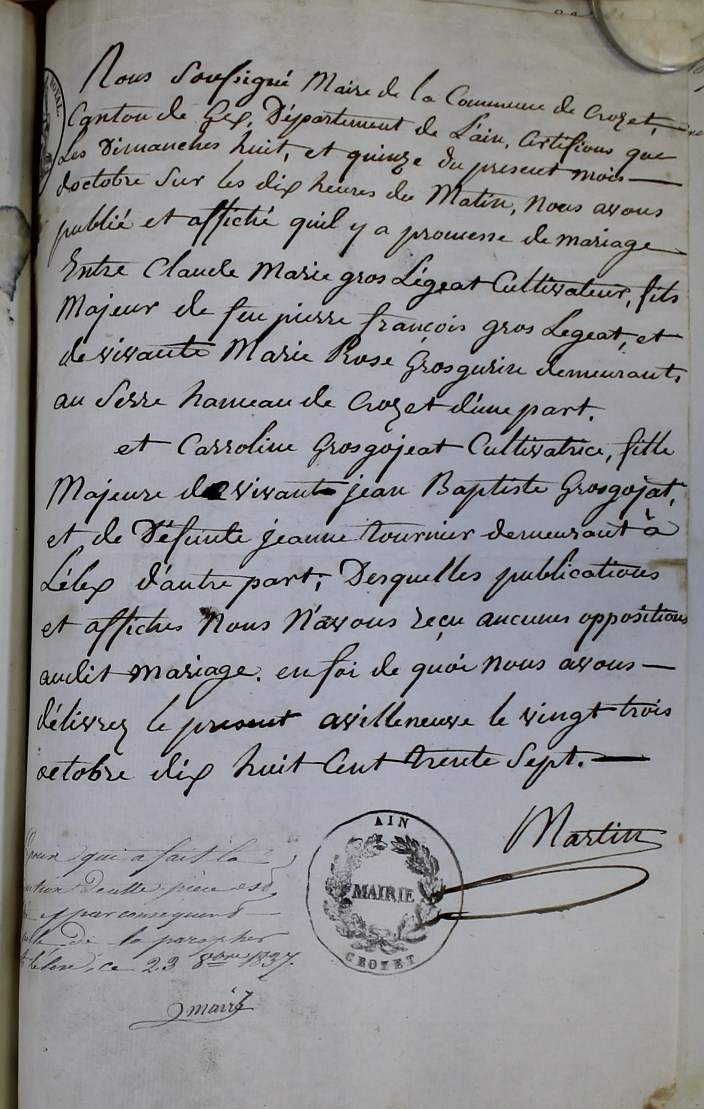 Nous Soussigné Maire de la Commune de Crozet,
Canton de Gex, Département de L'ain, Certifions que
Les Dimanches huit, et quinze du present mois —
doctobre Sur les dix heures du Matin, Nous avons
publié et affiché quil y a promesse de mariage
Entre Claude Marie gros Légeat Cultivateur, fils
Majeur de feu pierre françois gros Legeat, et
de vivante Marie Rose Grosgurin demeurant,
au Serre hameau de Crozet d'une part.
et Carroline Grosgojeat Cultivatrice, fille
Majeure de vivant jean Baptiste Grosgojat,
et de Défunte jeanne tournier demeurant à
Lélex d'autre part; Desquelles publications
et affiches Nous N'avons reçu aucunes oppositions
audit Mariage. en foi de quoi Nous avons —
délivrez le present a villeneuve le vingt trois
octobre dix huit Cent trente Sept. —
Martin
AIN
MAIRIE
CROZET
qui a fait la
pièce est
et par consequent
de la parapher
ce 23 8bre 1837.
ROYAL